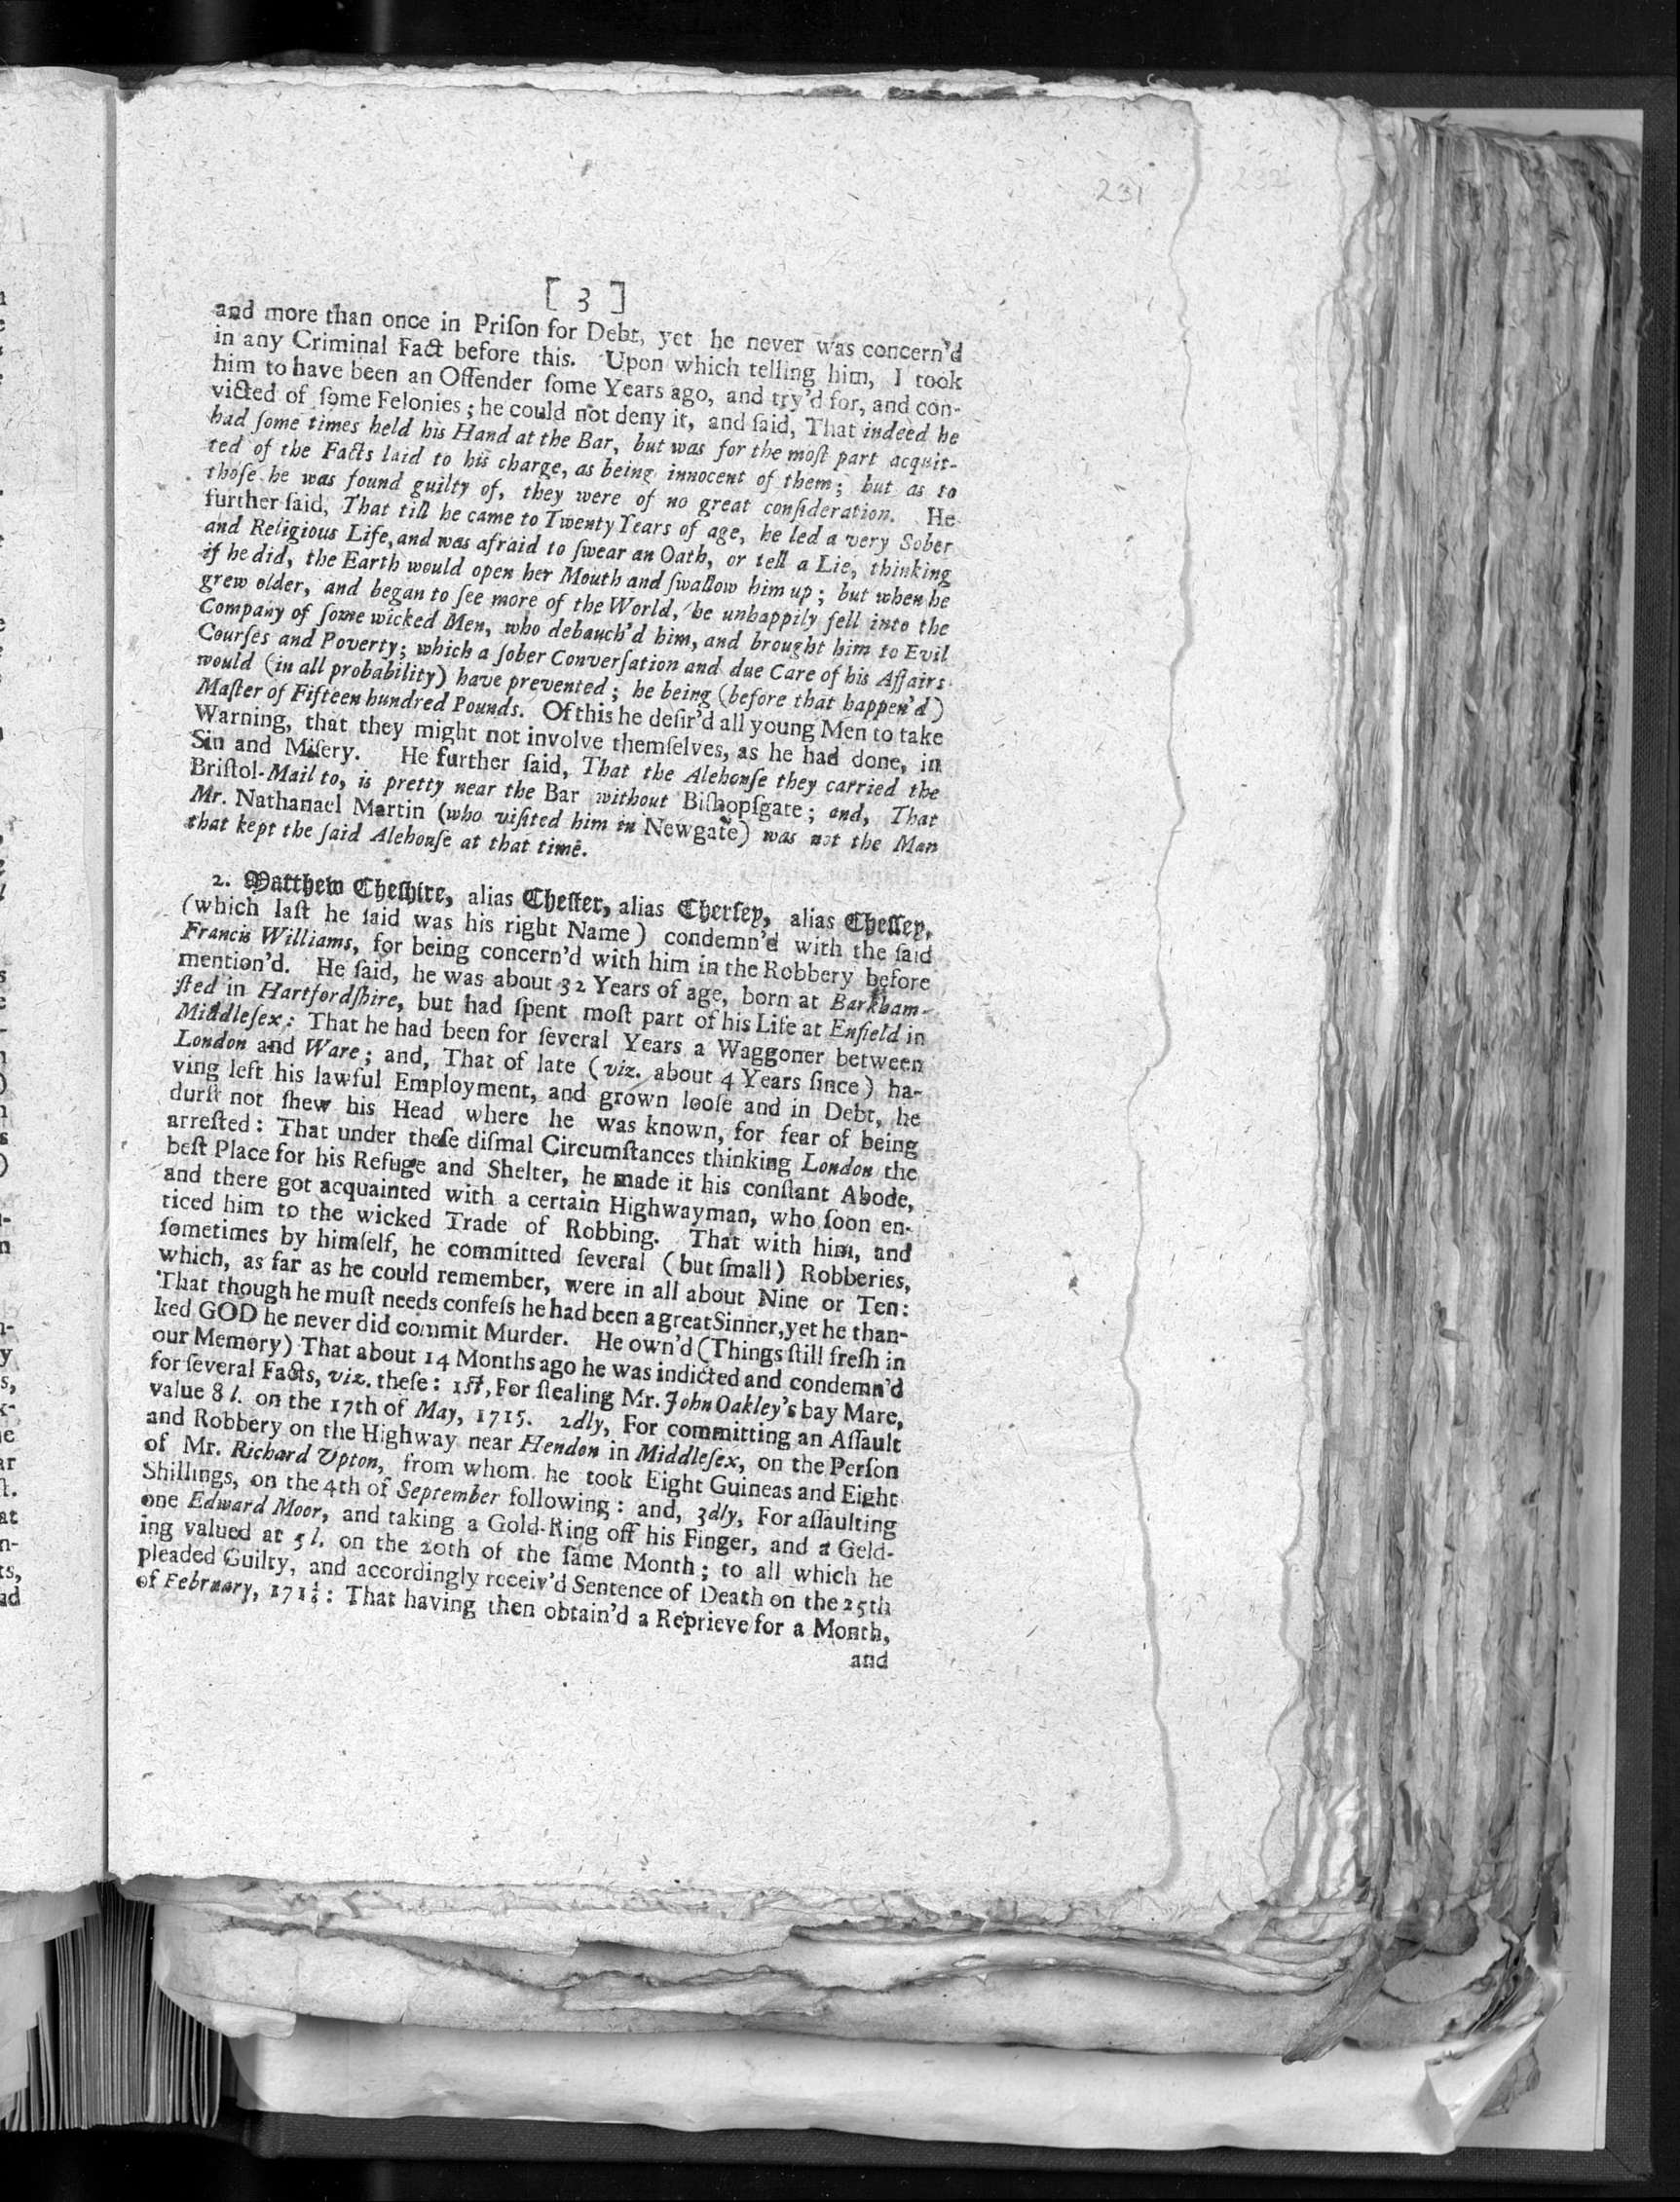 231
232
[ 3 ]
and more than once in Priſon for Debt, yet he never was concern'd
in any Criminal Fact before this. Upon which telling him, I took
him to have been an Offender ſome Years ago, and try'd for, and con-
victed of ſome Felonies; he could not deny it, and ſaid, That indeed he
had ſome times held his Hand at the Bar, but was for the moſt part acquit-
ted of the Facts laid to his charge, as being innocent of them; but as to
thoſe he was found guilty of, they were of no great conſideration. He
further ſaid, That till he came to Twenty Years of age, he led a very Sober
and Religious Life, and was afraid to ſwear an Oath, or tell a Lie, thinking
if he did, the Earth would open her Mouth and ſwallow him up; but when he
grew older, and began to ſee more of the World, he unhappily fell into the
Company of ſome wicked Men, who debauch'd him, and brought him to Evil
Courſes and Poverty; which a ſober Converſation and due Care of his Affairs
would (in all probability) have prevented; he being (before that happen'd)
Maſter of Fifteen hundred Pounds. Of this he deſir'd all young Men to take
Warning, that they might not involve themſelves, as he had done, in
Sin and Miſery. He further ſaid, That the Alehouſe they carried the
Briſtol-Mail to, is pretty near the Bar without Biſhopſgate; and, That
Mr. Nathanael Martin (who viſited him in Newgate) was not the Man
that kept the ſaid Alehouſe at that time.
2. Matthew Cheſhire, alias Cheſter, alias Cherſey, alias Cheſſey,
(which laſt he ſaid was his right Name) condemn'd with the ſaid
Francis Williams, for being concern'd with him in the Robbery before
mention'd. He ſaid, he was about 32 Years of age, born at Barkham-
ſted in Hartfordſhire, but had ſpent moſt part of his Life at Enfield in
Middleſex: That he had been for ſeveral Years a Waggoner between
London and Ware; and, That of late (viz. about 4 Years ſince) ha-
ving left his lawful Employment, and grown looſe and in Debt, he
durſt not ſhew his Head where he was known, for fear of being
arreſted: That under theſe diſmal Circumſtances thinking London the
beſt Place for his Refuge and Shelter, he made it his conſtant Abode,
and there got acquainted with a certain Highwayman, who ſoon en-
ticed him to the wicked Trade of Robbing. That with him, and
ſometimes by himſelf, he committed ſeveral (but ſmall) Robberies,
which, as far as he could remember, were in all about Nine or Ten:
That though he muſt needs confeſs he had been a great Sinner, yet he than-
ked GOD he never did commit Murder. He own'd (Things ſtill freſh in
our Memory) That about 14 Months ago he was indicted and condemn'd
for ſeveral Facts, viz. theſe: 1ſt, For ſtealing Mr. John Oakley's bay Mare,
value 8 l. on the 17th of May, 1715. 2dly, For committing an Aſſault
and Robbery on the Highway near Hendon in Middleſex, on the Perſon
of Mr. Richard Upton, from whom he took Eight Guineas and Eight
Shillings, on the 4th of September following: and, 3dly, For aſſaulting
one Edward Moor, and taking a Gold-Ring off his Finger, and a Geld-
ing valued at 5 l. on the 20th of the ſame Month; to all which he
pleaded Guilty, and accordingly receiv'd Sentence of Death on the 25th
of February, 171⅚: That having then obtain'd a Reprieve for a Month,
and